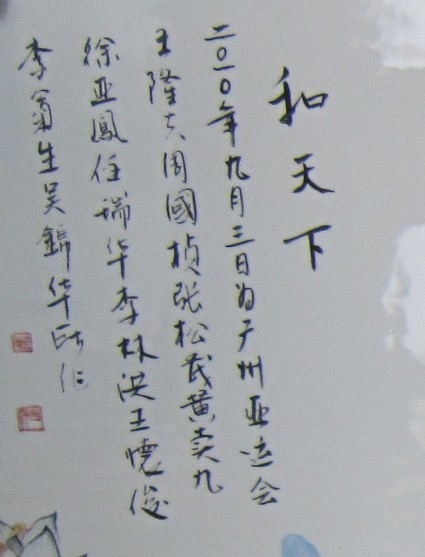 和天下
二〇一〇年九月三日为广州亚运会
王隆夫周國楨张松茂黄卖九
徐亚鳳任瑞华李林洪王懷俊
李菊生吴錦华联作